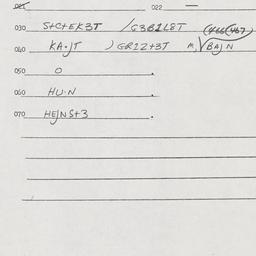 021 022 —
030 S+C+EK3T /G3B1L8T
040 KA·JT )GR1Z+3T M, BAJN
050 O .
060 HU·N .
070 HEJNS+3 .